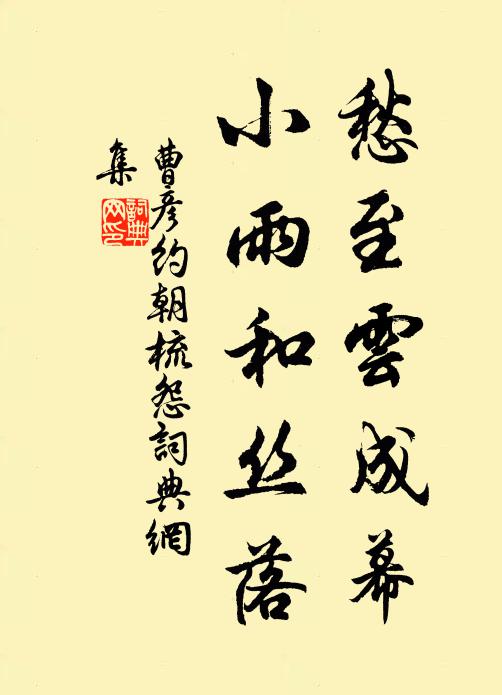 愁至雲成幕
小雨和丝落
曹彦约朝梳怨詞典網
集
詞典
网印